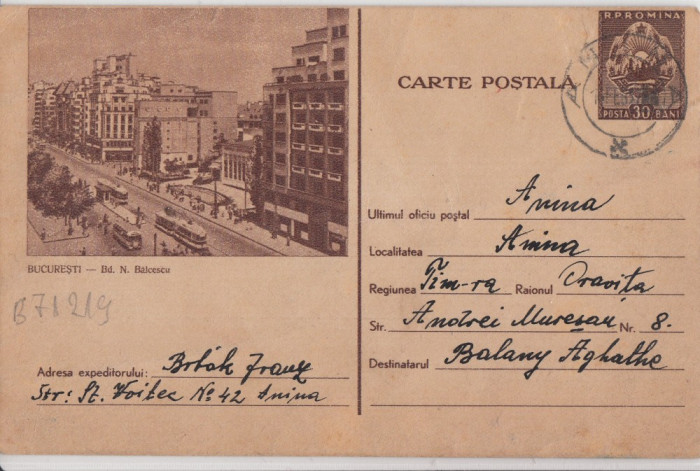 BUCUREȘTI — Bd. N. Bălcescu
B71219
Adresa expeditorului: Franz
Str: St. Voitec No 42 Anina
CARTE POȘTALĂ
R.P.ROMINA
POSTA 30 BANI
Ultimul oficiu poștal Anina
Localitatea Anina
Regiunea Tim-ra Raionul Oravița
Str. Andrei Mureșau Nr. 8.
Destinatarul Balany Aghathe